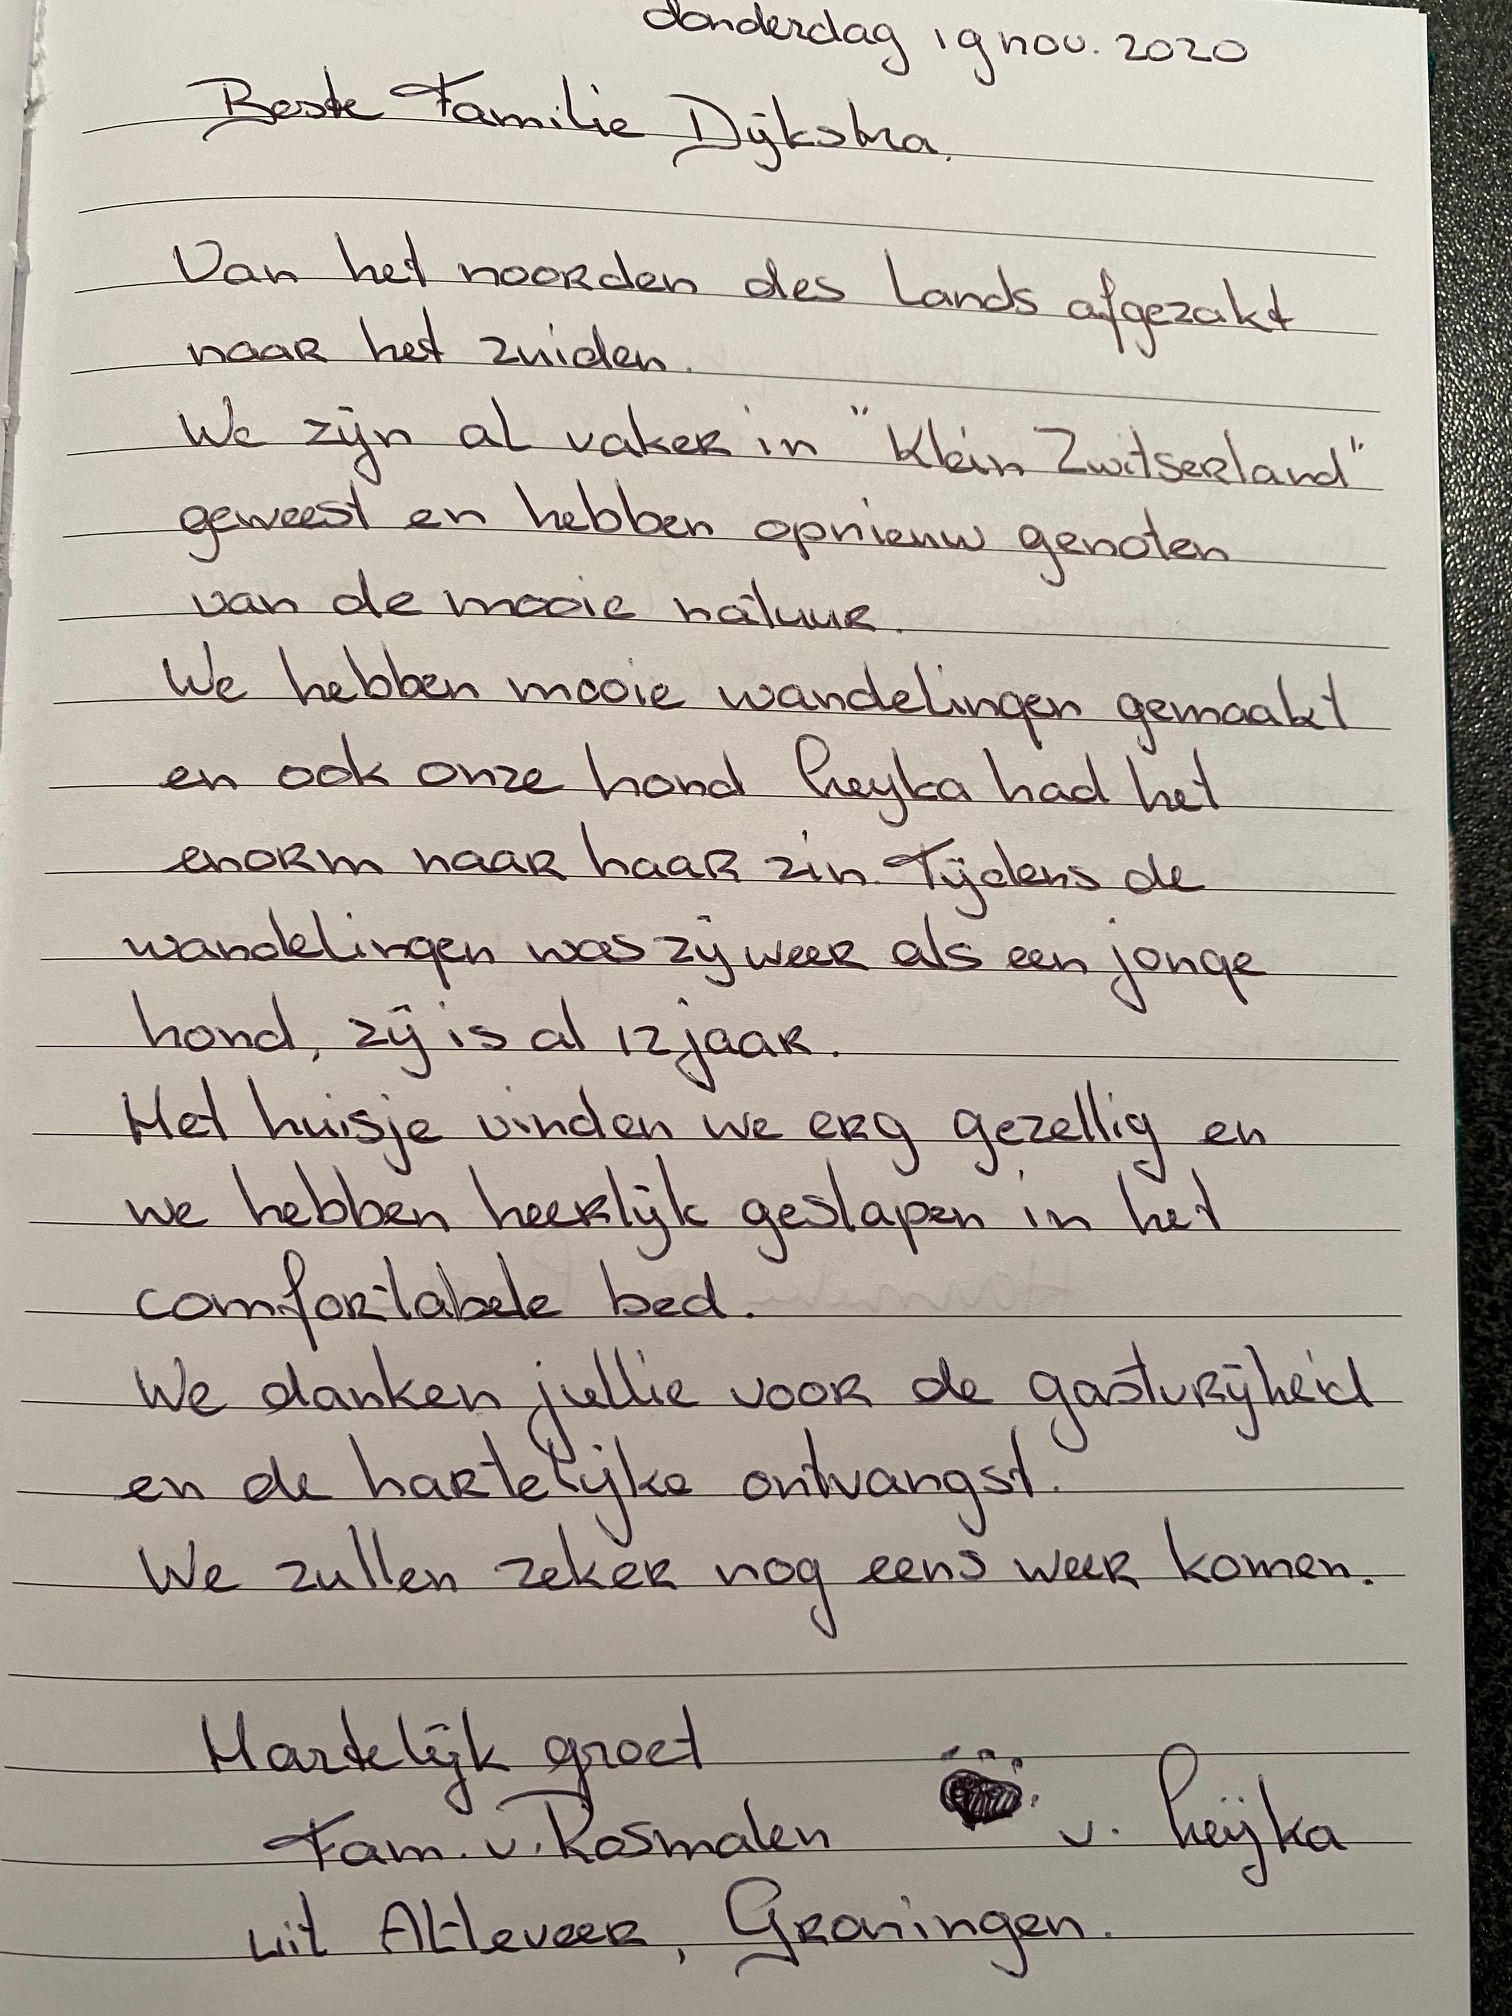 donderdag 19 nov. 2020
Beste Familie Dijkstra.
Van het noorden des Lands afgezakt
naar het zuiden.
We zijn al vaker in "Klein Zwitserland"
geweest en hebben opnieuw genoten
van de mooie natuur.
We hebben mooie wandelingen gemaakt
en ook onze hond had het
enorm naar haar zin. Tijdens de
wandelingen was zij weer als een jonge
hond, zij is al 12 jaar.
Het huisje vinden we erg gezellig en
we hebben heerlijk geslapen in het
comfortabele bed.
We danken jullie voor de gastvrijheid
en de hartelijke ontvangst.
We zullen zeker nog eens weer komen.
Hartelijk groet
Fam. v. Rosmalen v.
uit Alteveer, Groningen.